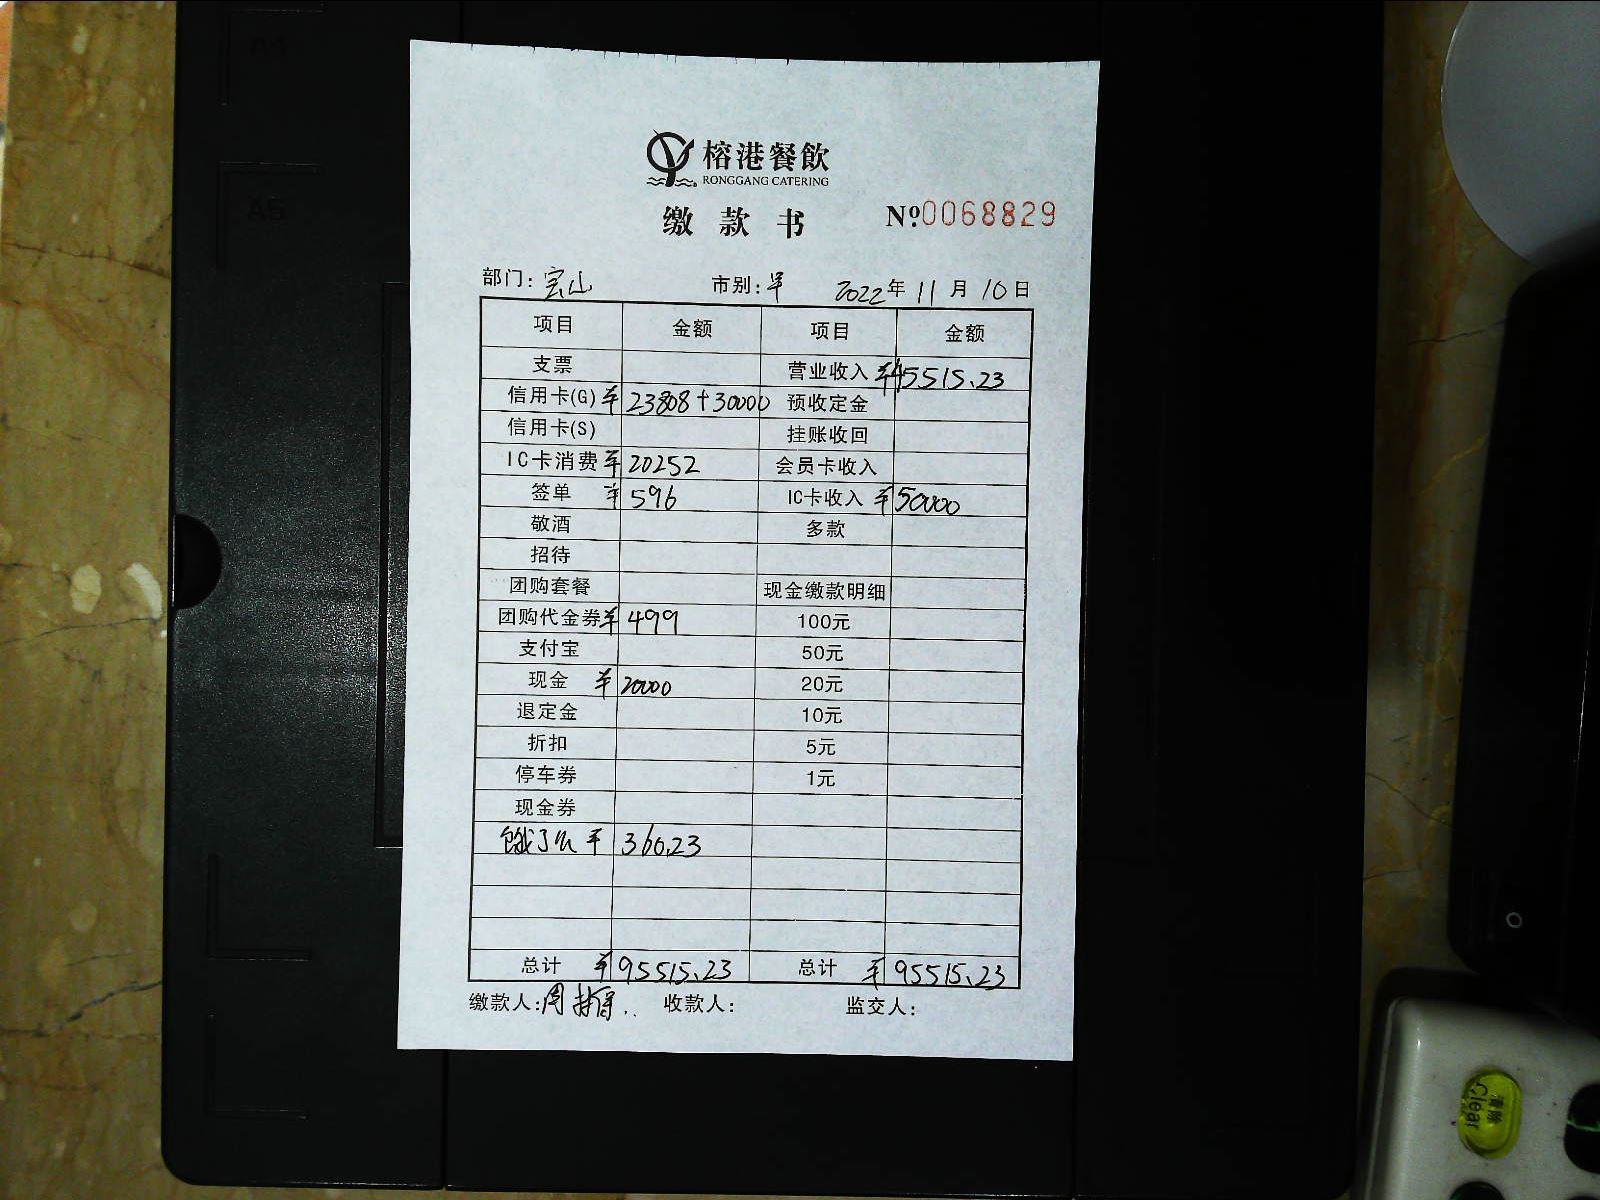 A4
A5
榕港餐飲
RONGGANG CATERING
缴款书 №0068829
部门: 宝山 市别: 早 2022年11月10日
项目 金额 项目 金额
支票 营业收入 ¥45515.23
信用卡(G) ¥23808+30000 预收定金
信用卡(S) 挂账收回
IC卡消费 ¥20252 会员卡收入
签单 ¥596 IC卡收入 ¥50000
敬酒 多款
招待
团购套餐 现金缴款明细
团购代金券 ¥499 100元
支付宝 50元
现金 ¥20000 20元
退定金 10元
折扣 5元
停车券 1元
现金券
饿了么 ¥360.23
总计 ¥95515.23 总计 ¥95515.23
缴款人: 周 收款人: 监交人:
清除
Clear